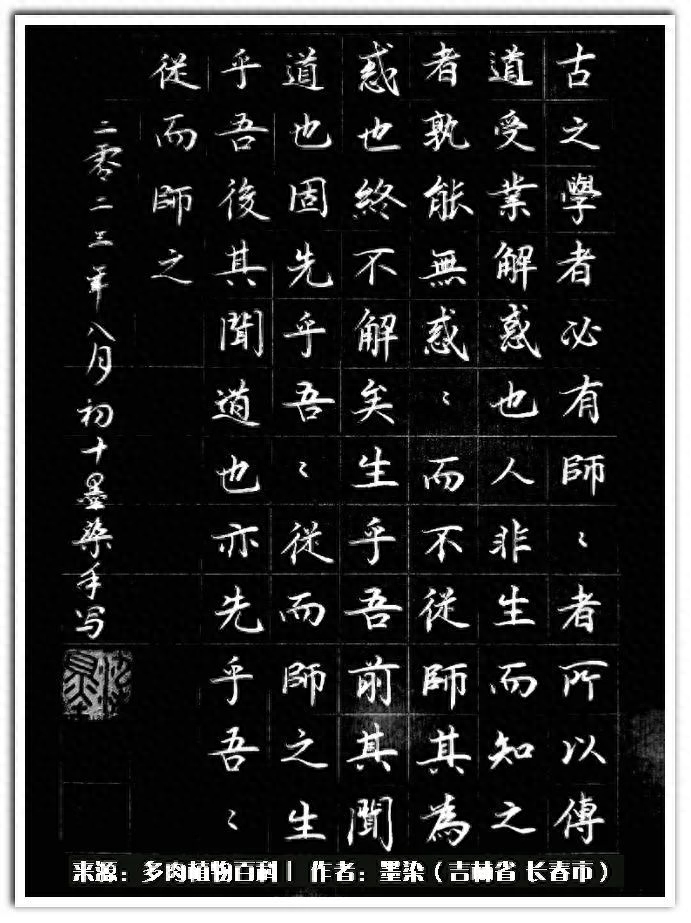 古之學者必有師〻者所以傳
道受業解惑也人非生而知之
者孰能無惑〻而不從師其為
惑也終不解矣生乎吾前其聞
道也固先乎吾〻從而師之生
乎吾後其聞道也亦先乎吾〻
從而師之
二零二三年八月初十墨染手写
来源：多肉植物百科 | 作者：墨染（吉林省 长春市）